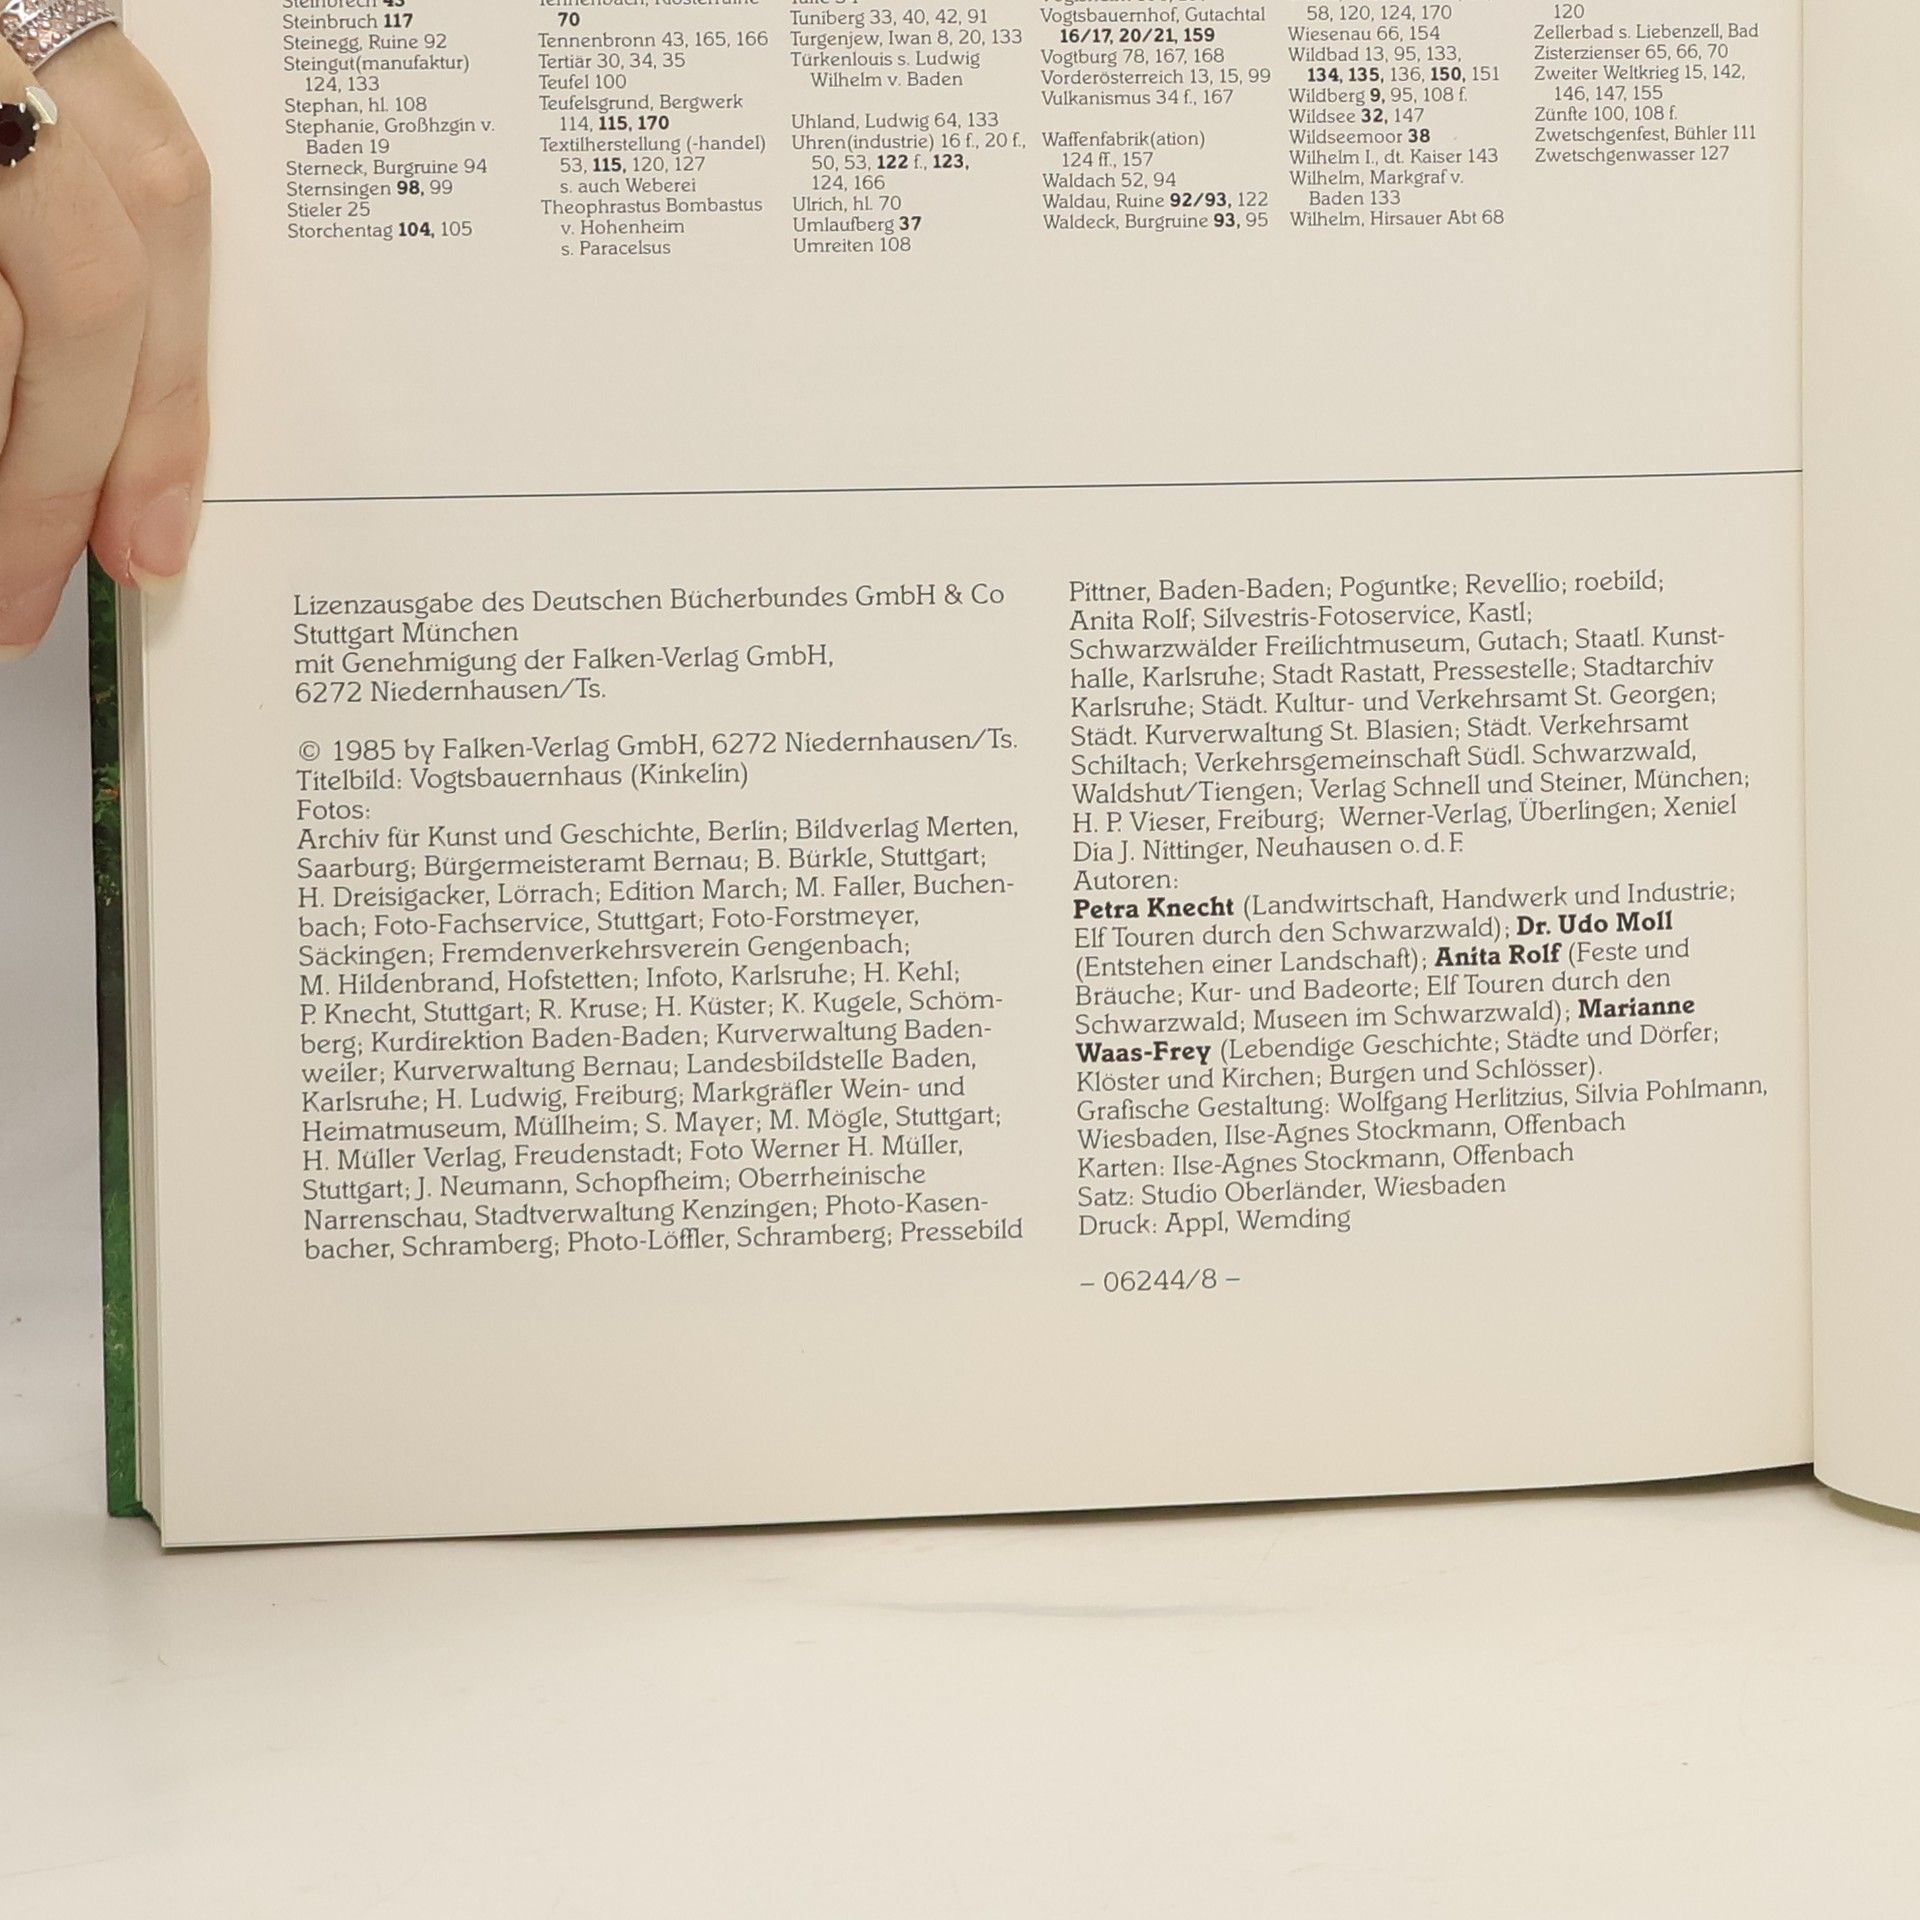 Steinbruch 117
Steinegg, Ruine 92
Steingut(manufaktur)
124, 133
Stephan, hl. 108
Stephanie, Großhzgin v.
Baden 19
Sterneck, Burgruine 94
Sternsingen 98, 99
Stieler 25
Storchentag 104, 105
70
Tennenbronn 43, 165, 166
Tertiär 30, 34, 35
Teufel 100
Teufelsgrund, Bergwerk
114, 115, 170
Textilherstellung (-handel)
53, 115, 120, 127
s. auch Weberei
Theophrastus Bombastus
v. Hohenheim
s. Paracelsus
Tuniberg 33, 40, 42, 91
Turgenjew, Iwan 8, 20, 133
Türkenlouis s. Ludwig
Wilhelm v. Baden
Uhland, Ludwig 64, 133
Uhren(industrie) 16 f., 20 f.,
50, 53, 122 f., 123,
124, 166
Ulrich, hl. 70
Umlaufberg 37
Umreiten 108
Vogtsbauernhof, Gutachtal
16/17, 20/21, 159
Vogtburg 78, 167, 168
Vorderösterreich 13, 15, 99
Vulkanismus 34 f., 167
Waffenfabrik(ation)
124 ff., 157
Waldach 52, 94
Waldau, Ruine 92/93, 122
Waldeck, Burgruine 93, 95
58, 120, 124, 170
Wiesenau 66, 154
Wildbad 13, 95, 133,
134, 135, 136, 150, 151
Wildberg 9, 95, 108 f.
Wildsee 32, 147
Wildseemoor 38
Wilhelm I., dt. Kaiser 143
Wilhelm, Markgraf v.
Baden 133
Wilhelm, Hirsauer Abt 68
120
Zellerbad s. Liebenzell, Bad
Zisterzienser 65, 66, 70
Zweiter Weltkrieg 15, 142,
146, 147, 155
Zünfte 100, 108 f.
Zwetschgenfest, Bühler 111
Zwetschgenwasser 127
Lizenzausgabe des Deutschen Bücherbundes GmbH & Co
Stuttgart München
mit Genehmigung der Falken-Verlag GmbH,
6272 Niedernhausen/Ts.
© 1985 by Falken-Verlag GmbH, 6272 Niedernhausen/Ts.
Titelbild: Vogtsbauernhaus (Kinkelin)
Fotos:
Archiv für Kunst und Geschichte, Berlin; Bildverlag Merten,
Saarburg; Bürgermeisteramt Bernau; B. Bürkle, Stuttgart;
H. Dreisigacker, Lörrach; Edition March; M. Faller, Buchen-
bach; Foto-Fachservice, Stuttgart; Foto-Forstmeyer,
Säckingen; Fremdenverkehrsverein Gengenbach;
M. Hildenbrand, Hofstetten; Infoto, Karlsruhe; H. Kehl;
P. Knecht, Stuttgart; R. Kruse; H. Küster; K. Kugele, Schöm-
berg; Kurdirektion Baden-Baden; Kurverwaltung Baden-
weiler; Kurverwaltung Bernau; Landesbildstelle Baden,
Karlsruhe; H. Ludwig, Freiburg; Markgräfler Wein- und
Heimatmuseum, Müllheim; S. Mayer; M. Mögle, Stuttgart;
H. Müller Verlag, Freudenstadt; Foto Werner H. Müller,
Stuttgart; J. Neumann, Schopfheim; Oberrheinische
Narrenschau, Stadtverwaltung Kenzingen; Photo-Kasen-
bacher, Schramberg; Photo-Löffler, Schramberg; Pressebild
Pittner, Baden-Baden; Poguntke; Revellio; roebild;
Anita Rolf; Silvestris-Fotoservice, Kastl;
Schwarzwälder Freilichtmuseum, Gutach; Staatl. Kunst-
halle, Karlsruhe; Stadt Rastatt, Pressestelle; Stadtarchiv
Karlsruhe; Städt. Kultur- und Verkehrsamt St. Georgen;
Städt. Kurverwaltung St. Blasien; Städt. Verkehrsamt
Schiltach; Verkehrsgemeinschaft Südl. Schwarzwald,
Waldshut/Tiengen; Verlag Schnell und Steiner, München;
H. P. Vieser, Freiburg; Werner-Verlag, Überlingen; Xeniel
Dia J. Nittinger, Neuhausen o. d. F.
Autoren:
Petra Knecht (Landwirtschaft, Handwerk und Industrie;
Elf Touren durch den Schwarzwald); Dr. Udo Moll
(Entstehen einer Landschaft); Anita Rolf (Feste und
Bräuche; Kur- und Badeorte; Elf Touren durch den
Schwarzwald; Museen im Schwarzwald); Marianne
Waas-Frey (Lebendige Geschichte; Städte und Dörfer;
Klöster und Kirchen; Burgen und Schlösser).
Grafische Gestaltung: Wolfgang Herlitzius, Silvia Pohlmann,
Wiesbaden, Ilse-Agnes Stockmann, Offenbach
Karten: Ilse-Agnes Stockmann, Offenbach
Satz: Studio Oberländer, Wiesbaden
Druck: Appl, Wemding
– 06244/8 –